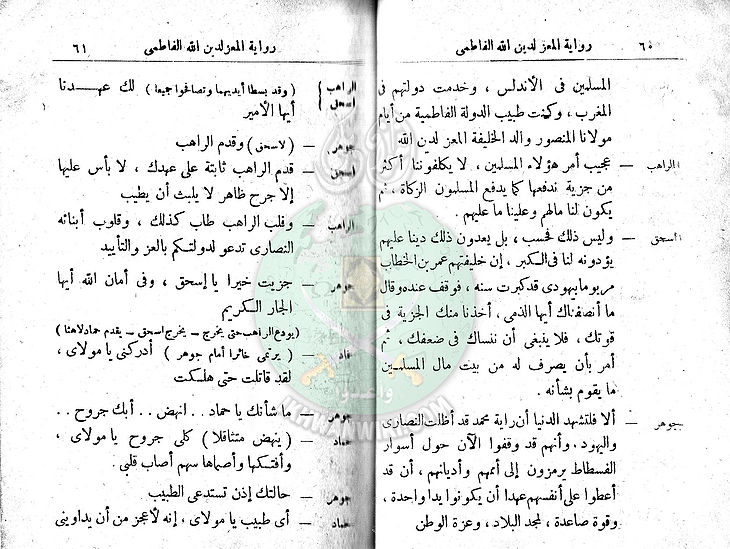 ٦٠ رواية المعز لدين الله الفاطمى
المسلمين فى الأندلس ، وخدمت دولتهم فى
المغرب ، وكنت طبيب الدولة الفاطمية من أيام
مولانا المنصور والد الخليفة المعز لدين الله
الراهب — عجيب أمر هؤلاء المسلمين ، لا يكلفوننا أكثر
من جزية ندفعها كما يدفع المسلمون الزكاة ، ثم
يكون لنا مالهم وعلينا ما عليهم .
اسحق — وليس ذلك فحسب ، بل يعدون ذلك دينا عليهم
يؤدونه لنا فى الكبر ، إن خليفتهم عمر بن الخطاب
مر يوما بيهودى قد كبرت سنه ، فوقف عنده وقال
ما أنصفناك أيها الذمى ، أخذنا منك الجزية فى
قوتك ، فلا ينبغى أن ننساك فى ضعفك ، ثم
أمر بأن يصرف له من بيت مال المسلمين
ما يقوم بشأنه .
جوهر — ألا فلتشهد الدنيا أن راية محمد قد أظلت النصارى
واليهود ، وأنهم قد وقفوا الآن حول أسوار
الفسطاط يرمزون إلى أممهم وأديانهم ، أن قد
أعطوا على أنفسهم عهدا أن يكونوا يدا واحدة ،
وقوة صاعدة ، لمجد البلاد ، وعزة الوطن
رواية المعز لدين الله الفاطمى ٦١
الراهب اسحق } ( وقد بسطا أيديهما وتصافحوا جميعا ) لك عهدنا
أيها الأمير
جوهر — ( لاسحق ) وقدم الراهب
اسحق — قدم الراهب ثابتة على عهدك ، لا بأس عليها
إلا جرح ظاهر لا يلبث أن يطيب
الراهب — وقلب الراهب طاب كذلك ، وقلوب أبنائه
النصارى تدعو لدولتكم بالعز والتأييد
جوهر — جزيت خيرا يا إسحق ، وفى أمان الله أيها
الجار الكريم
( يودع الراهب حتى يخرج — يخرج اسحق — يقدم حماد لاهثا )
حماد — ( يرتمى خائرا أمام جوهر ) أدركنى يا مولاى ،
لقد قاتلت حتى هلكت
جوهر — ما شأنك يا حماد . . انهض . . أبك جروح . .
حماد — ( ينهض متثاقلا ) كلى جروح يا مولاى ،
وأفتكها وأصماها سهم أصاب قلبى .
جوهر — حالتك إذن تستدعى الطبيب
حماد — أى طبيب يا مولاى ، إنه لأعجز من أن يداوينى